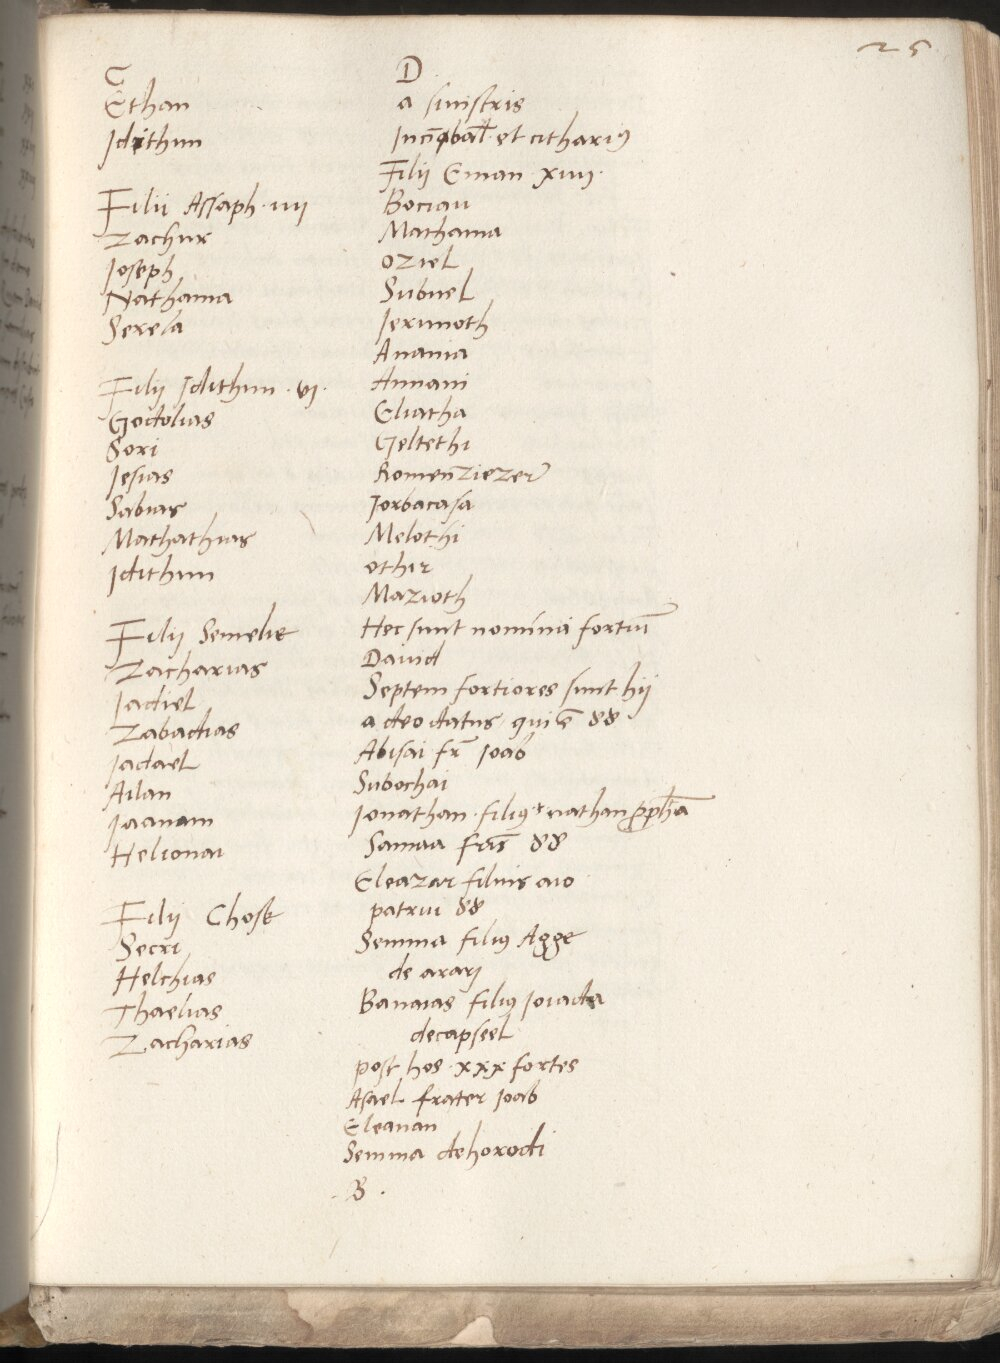 25
C
Ethan
Idithun
Filii Assaph · iiij
Zachur
Ioseph
Nathania
Serela
Filij Idithun · vj ·
Godolias
Sori
Iesias
Sabias
Mathathias
Idithun
Filij Semelie
Zacharias
Iadiel
Zabadias
Iadael
Ailan
Iaanam
Helionai
Filij Chose
Secri
Helchias
Thaelias
Zacharias
D
a sinistris
In cibal et citharis
Filij Eman xiiij ·
Bociau
Mathania
Oziel
Subuel
Ierimoth
Anania
Annani
Eliatha
Geltethi
Romenziezer
Iorbacasa
Melothi
Othir
Mazioth
Hec sunt nomina fortiū
Dauid
Septem fortiores sunt hij
a deo datus · qui ē 88 ·
Abisai fr̄ Ioab
Subochai
Ionathan · filius nathan ꝓph̄a
Samaa fr̄is 88
Eleazar filius aio
patrui 88
Semma filius Agge
de ararj
Banaias filius Ioiada
decapseel
post hos · xxx fortes
Asael frater Ioab
Eleanan
Semma dehorodi
· B ·